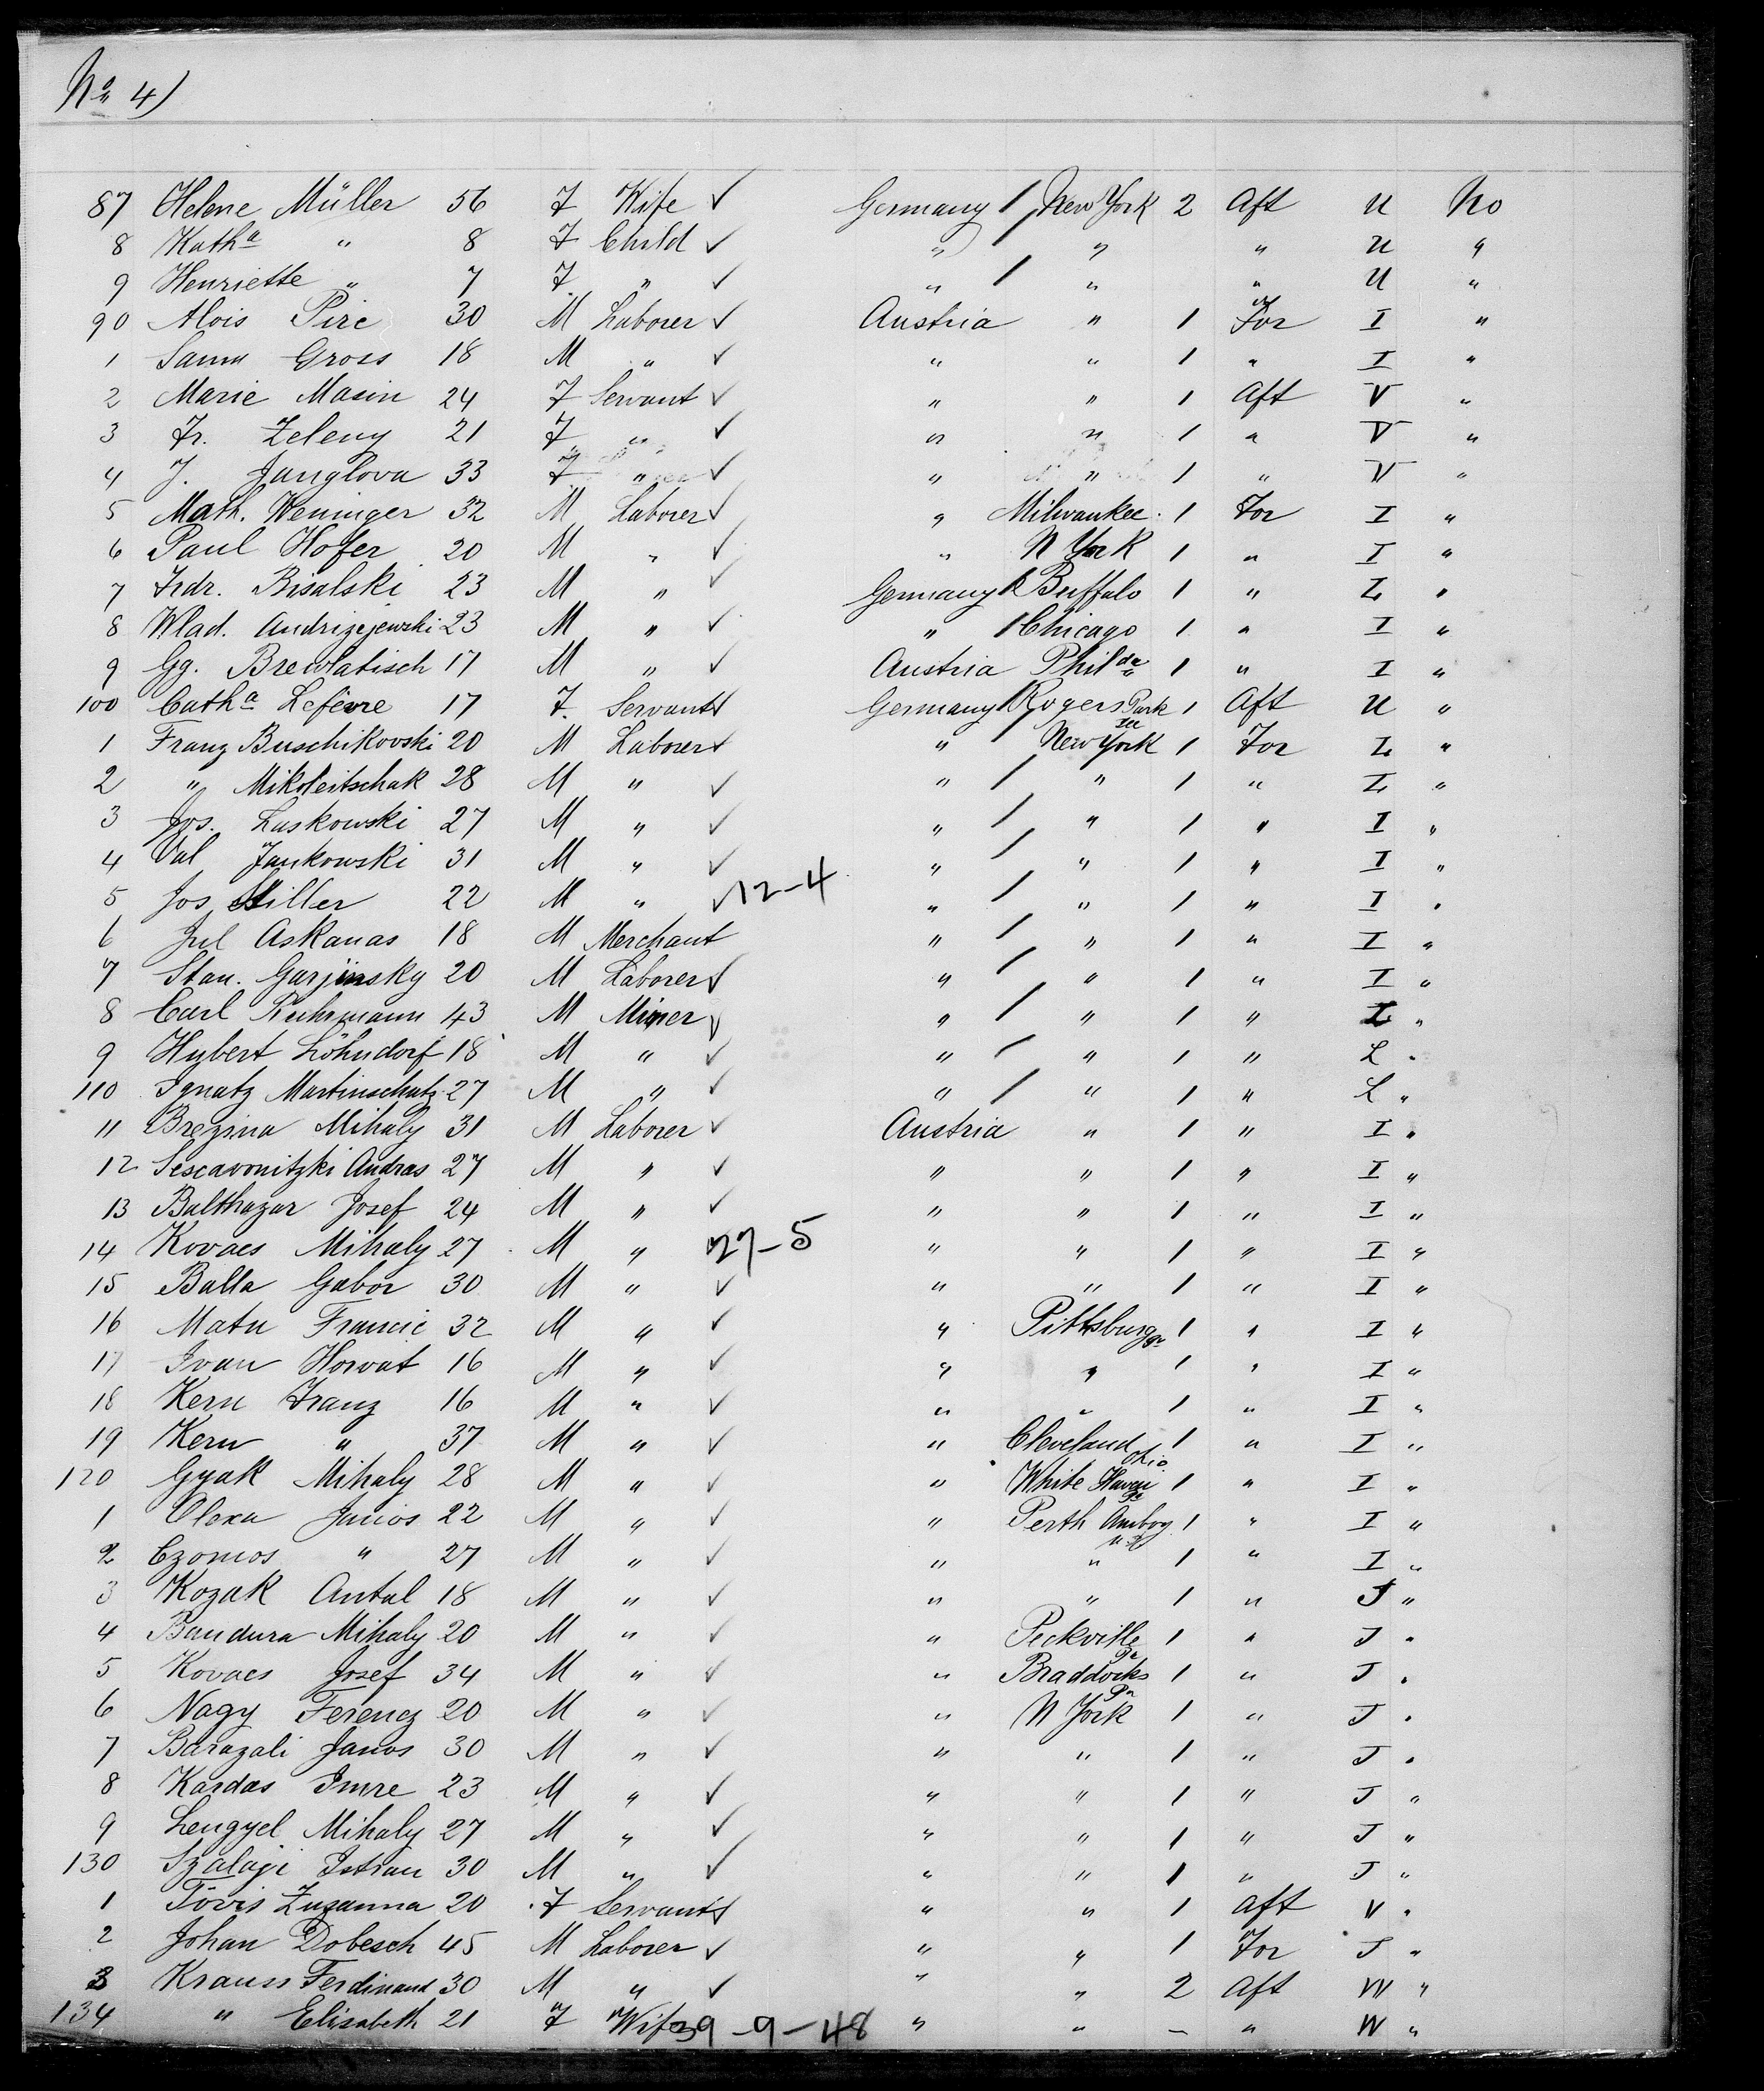 No 4)
87 Helene Müller 56 F Wife ✓ Germany / New York 2 Aft U No
8 Katha " 8 F Child ✓ " / " " U "
9 Henriette " 7 F " ✓ " / " " U "
90 Alois Pirc 30 M Laborer ✓ Austria " 1 For I "
1 Samu Gross 18 M " ✓ " " 1 " I "
2 Marie Masin 24 F Servant ✓ " " 1 Aft V "
3 Fr. Zeleny 21 F " ✓ " " 1 " V "
4 J. Janglova 33 F " ✓ " " 1 " V "
5 Math. Weninger 32 M Laborer ✓ " Milwaukee 1 For I "
6 Paul Hofer 20 M " ✓ " N York 1 " I "
7 Frdr. Bisalski 23 M " ✓ Germany / Buffalo 1 " I "
8 Wlad. Andrizejewski 23 M " ✓ " / Chicago 1 " I "
9 Gg. Brewlatisch 17 M " ✓ Austria Philda 1 " I "
100 Catha Lefevre 17 F. Servant ✓ Germany / Rogers Park Ill 1 Aft U "
1 Franz Buschikovski 20 M Laborer ✓ " / New York 1 For I "
2 " Mikoleitschak 28 M " ✓ " / " 1 " I "
3 Jos. Laskowski 27 M " ✓ " / " 1 " I "
4 Val Jankowski 31 M " ✓ " / " 1 " I "
5 Jos Stiller 22 M " ✓ 12-4 " / " 1 " I "
6 Jul Askanas 18 M Merchant " / " 1 " I "
7 Stan. Garjinsky 20 M Laborer ✓ " / " 1 " I "
8 Carl Ruhrmann 43 M Miner ✓ " / " 1 " L "
9 Hubert Löhndorf 18 M " ✓ " / " 1 " L "
110 Ignatz Martinschatz 27 M " ✓ " / " 1 " L "
11 Brezina Mihaly 31 M Laborer ✓ Austria " 1 " I "
12 Sescavonitzki Andras 27 M " ✓ " " 1 " I "
13 Balthazar Josef 24 M " ✓ " " 1 " I "
14 Kovacs Mihaly 27 M " ✓ 27-5 " " 1 " I "
15 Balla Gabor 30 M " ✓ " " 1 " I "
16 Matu Francic 32 M " ✓ " Pittsburg Pa 1 " I "
17 Ivan Horvat 16 M " ✓ " " 1 " I "
18 Kern Franz 16 M " ✓ " " 1 " I "
19 Kern " 37 M " ✓ " Cleveland Ohio 1 " I "
120 Gyak Mihaly 28 M " ✓ " White Haven Pa 1 " I "
1 Olexa Janos 22 M " ✓ " Perth Amboy N J 1 " I "
2 Czomos " 27 M " ✓ " " 1 " I "
3 Kozak Antal 18 M " ✓ " " 1 " J "
4 Bandura Mihaly 20 M " ✓ " Peckville Pa 1 " J "
5 Kovacs Josef 34 M " ✓ " Braddocks Pa 1 " J "
6 Nagy Ferencz 20 M " ✓ " N York 1 " J "
7 Barazali Janos 30 M " ✓ " " 1 " J "
8 Kardas Imre 23 M " ✓ " " 1 " J "
9 Lengyel Mihaly 27 M " ✓ " " 1 " J "
130 Szalaji Istvan 30 M " ✓ " " 1 " J "
1 Tövis Zuzanna 20 F Servant ✓ " " 1 Aft V "
2 Johan Dobesch 45 M Laborer ✓ " " 1 For J "
3 Krauss Ferdinand 30 M " ✓ " " 2 Aft W "
134 " Elisabeth 21 F Wife 39-9-48 " " - " W "